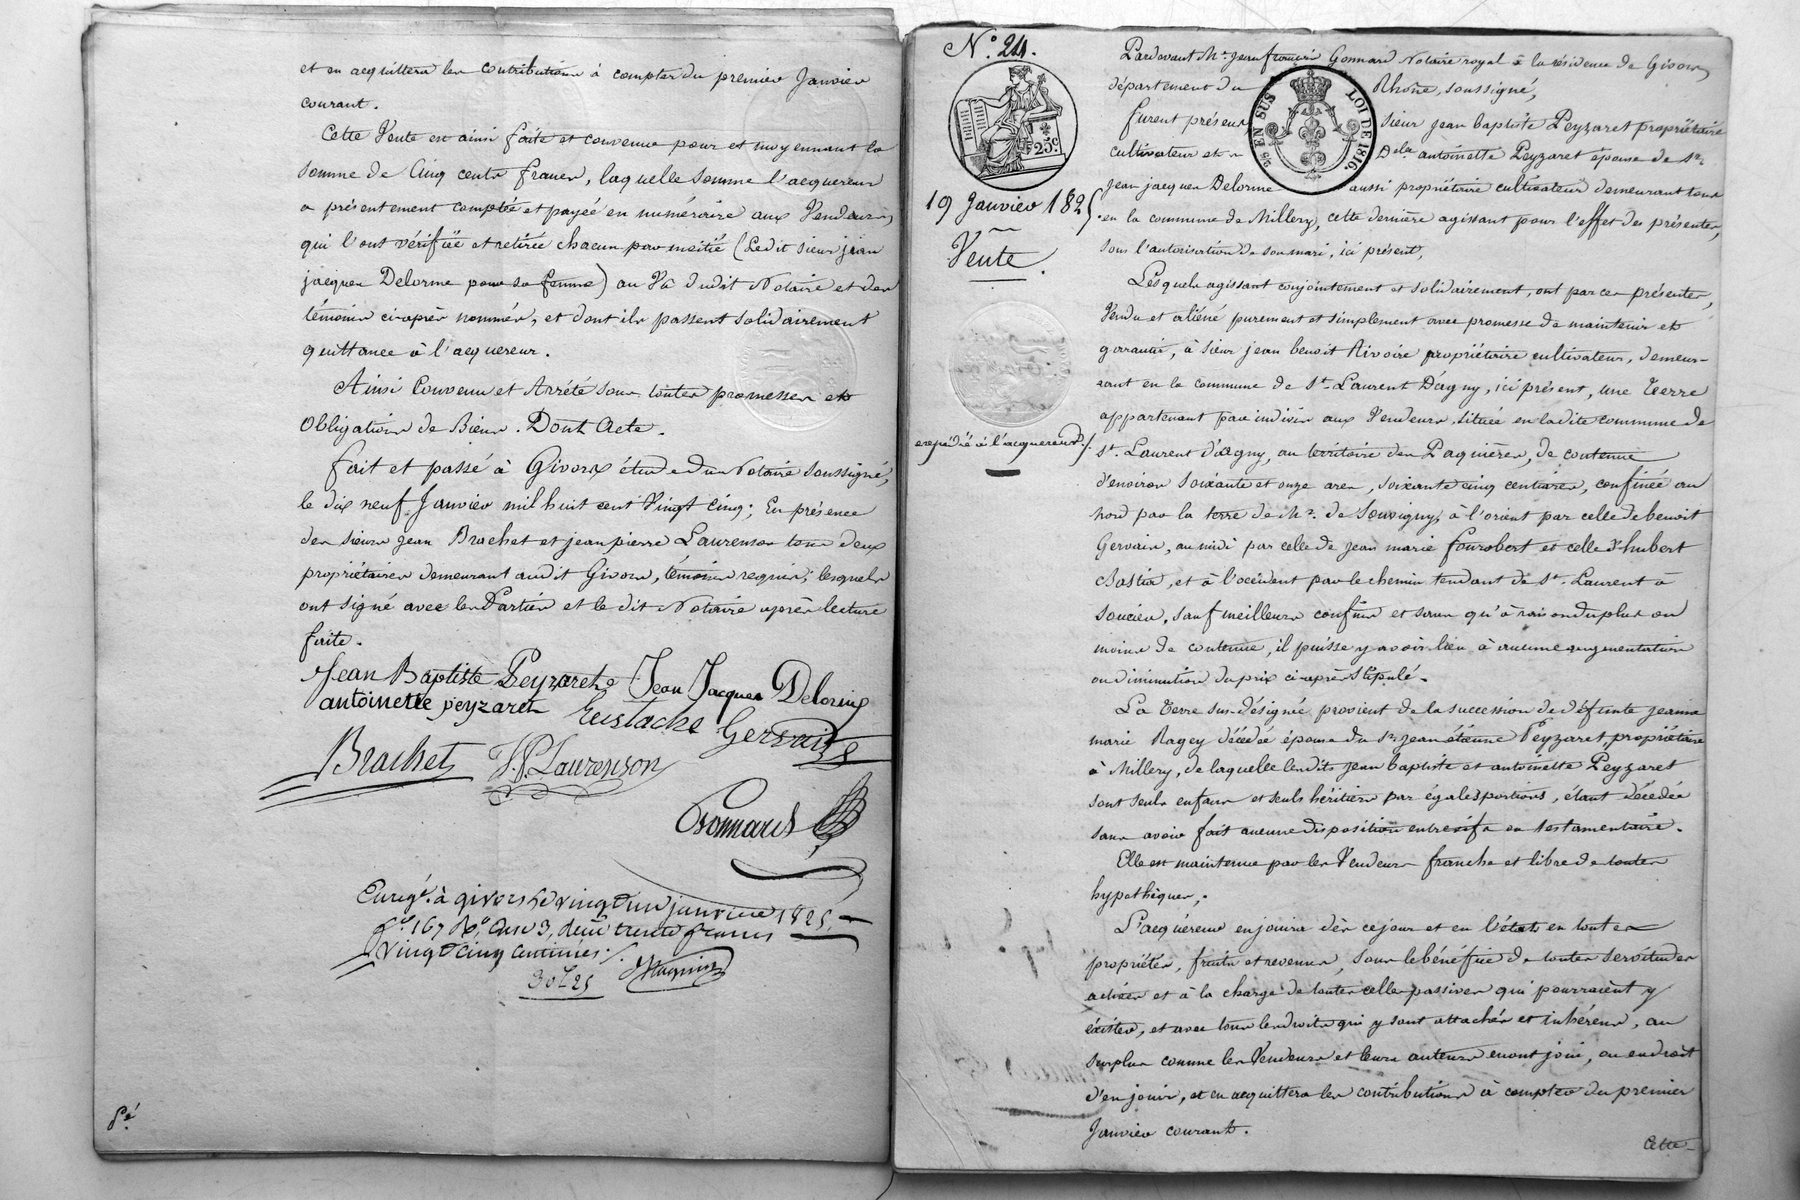 et en acquittera les contributions à compter du premier Janvier
courant.
Cette Vente est ainsi faite et convenue pour et moyennant la
somme de Cinq cents francs, laquelle somme l'acquereur
a présentement comptée et payée en numéraire aux Vendeurs,
qui l'ont vérifiée et retirée chacun par moitié (Ledit sieur jean
jacques Delorme pour sa femme) au Vû dudit Notaire et des
témoins ci-après nommés, et dont ils passent solidairement
quittance à l'acquereur.
Ainsi Convenu et Arrêté sous toutes promesses et
Obligations de Biens. Dont Acte.
fait et passé à Givors étude du Notaire soussigné,
le dix neuf Janvier mil huit cent Vingt cinq; En présence
des sieurs Jean Brachet et jean pierre Laurenson tous deux
propriétaires demeurant audit Givors, témoins requis; lesquels
ont signé avec les Parties et le dit Notaire après lecture
faite.
Jean Baptiste Peyzaret Jean Jacques Delorme
antoinette peyzaret Eustache Gervais
Brachet J.P. Laurenson
Gonnard
Enregt. à givors le vingt un janvier 1825
fo. 167 Ro. Case 3, reçu trente francs
vingt cinq centimes.
30f 25
No. 24.
19 Janvier 1825.
Vente.
expédié à l'acquereur
25c
EN SUS
LOI DE 1816.
Pardevant Me. Jean françois Gonnard Notaire royal à la résidence de Givors
département du Rhône, soussigné,
furent présens sieur jean baptiste Peyzaret propriétaire
cultivateur et Dela antoinette Peyzaret épouse de sr.
jean jacques Delorme aussi propriétaire cultivateur demeurant tous
en la commune de Millery, cette dernière agissant pour l'effet des présentes,
sous l'autorisation de son mari, ici présent,
Lesquels agissant conjointement et solidairement, ont par ces présentes,
Vendu et aliéné purement et simplement avec promesse de maintenir et
garantir, à sieur jean benoit Rivoire propriétaire cultivateur, demeu-
rant en la commune de St. Laurent D'agny, ici présent, une terre
appartenant par indivis aux Vendeurs, située en ladite commune de
St. Laurent d'agny, au territoire des Paquières, de contenue
d'environ soixante et onze ares, soixante cinq centiares, confinée au
nord par la terre de Mr. de Souvigny, à l'orient par celle de benoit
Gervais, au midi par celle de jean marie fourobert et celle d'hubert
Bastia, et à l'occident par le chemin tendant de St. Laurent à
soucieu, sauf meilleurs confins et sans qu'à raison du plus ou
moins de contenue, il puisse y avoir lieu à aucune augmentation
ou diminution du prix ci-après stipulé.
La terre sus-désignée provient de la succession de défunte jeanne
marie Ragey décédée épouse du sr. jean étienne Peyzaret, propriétaire
à Millery, de laquelle lesdits jean baptiste et antoinette Peyzaret
sont seuls enfans et seuls héritiers par égales portions, étant décédée
sans avoir fait aucune disposition entrevifs ou testamentaire.
Elle est maintenue par les Vendeurs franche et libre de toutes
hypothèques.
L'acquéreur en jouira dès ce jour et en l'état en toutes
propriétés, fruits et revenus, sous le bénéfice de toutes servitudes
actives et à la charge de toutes celles passives qui pourraient y
éxister, et avec tous les droits qui y sont attachés et inhérens, au
surplus comme les Vendeurs et leurs auteurs en ont joui, ou eu droit
d'en jouir, et en acquittera les contributions à compter du premier
Janvier courant.
Cette